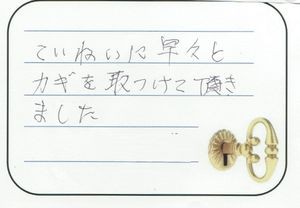 ていねいに早々と
カギを取つけて頂き
ました